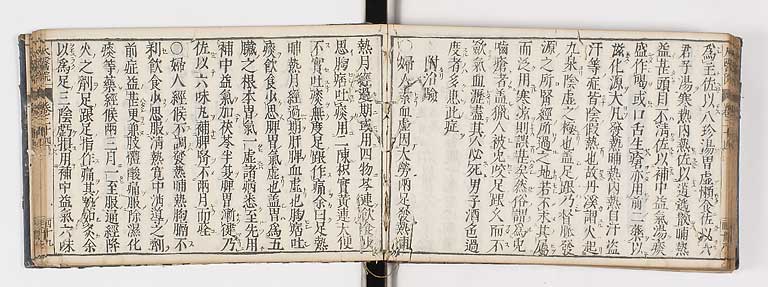 爲主佐以八珍湯胃虛懶食佐以六
君子湯寒熱內熱佐以逍遙散晡熱
益甚頭目不清佐以補中益氣湯痰
盛作喝或口舌生瘡亦用前二藥以
滋化源大凡發熱晡熱內熱自汗盜
汗等症皆陰假熱也故丹溪謂火起
九泉陰虛之極也蓋足跟乃督脉發
源之所腎經所過之地若不求其屬
而泛用寒涼則誤甚矣俗謂爲兎
嚙瘡者蓋獵人被兎咬足跟久而不
斂氣血瀝盡其人必死男子酒色過
度者多患此症
附治驗
〇婦人素血虛因大勞兩足發熱晡
熱月經過期或用四物芩連飲食少
思胸痞吐痰用二陳枳實黃連大便
不實吐痰無度足跟作痛余曰足熱
晡熱月經過期肝脾血虛也胸痞吐
痰飲食少思脾胃氣虛也蓋胃爲五
臟之根本胃氣一虛諸病悉至先用
補中益氣加茯苓半夏脾胃漸健乃
佐以六味丸補脾腎不兩月而痊
〇婦人經候不調發熱晡熱胸膈不
利飲食少思服清熱寬中消導之劑
前症益甚更兼肢體酸痛服除濕化
痰等藥經候兩三月一至服通經降
火之劑足跟足指作痛其熱如炙余
以爲足三陰虧損用補中益氣六味